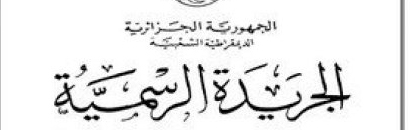 الجمهورية الجزائرية
الديمقراطية الشعبية
الجريدة الرسمية